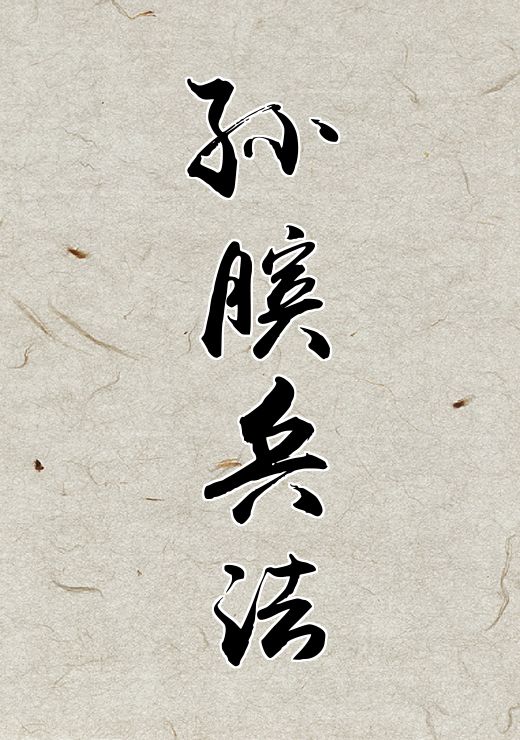 孙膑兵法